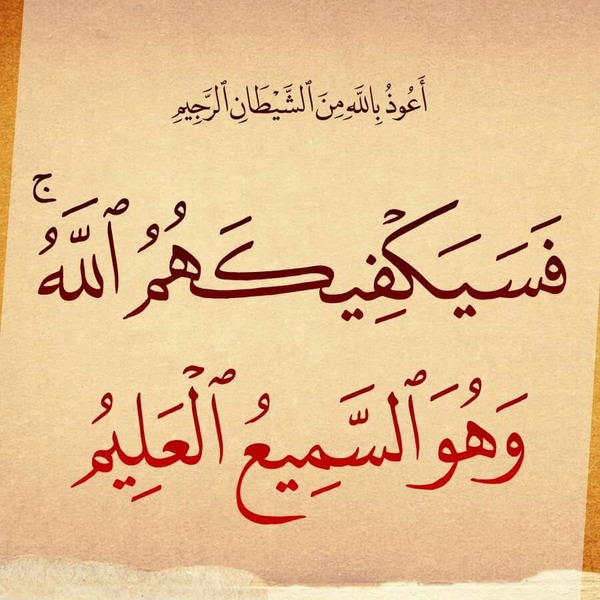 أَعُوذُ بِاللَّهِ مِنَ ٱلشَّيْطَانِ ٱلرَّجِيمِ
فَسَيَكْفِيكَهُمُ ٱللَّهُ ۚ
وَهُوَ ٱلسَّمِيعُ ٱلْعَلِيمُ